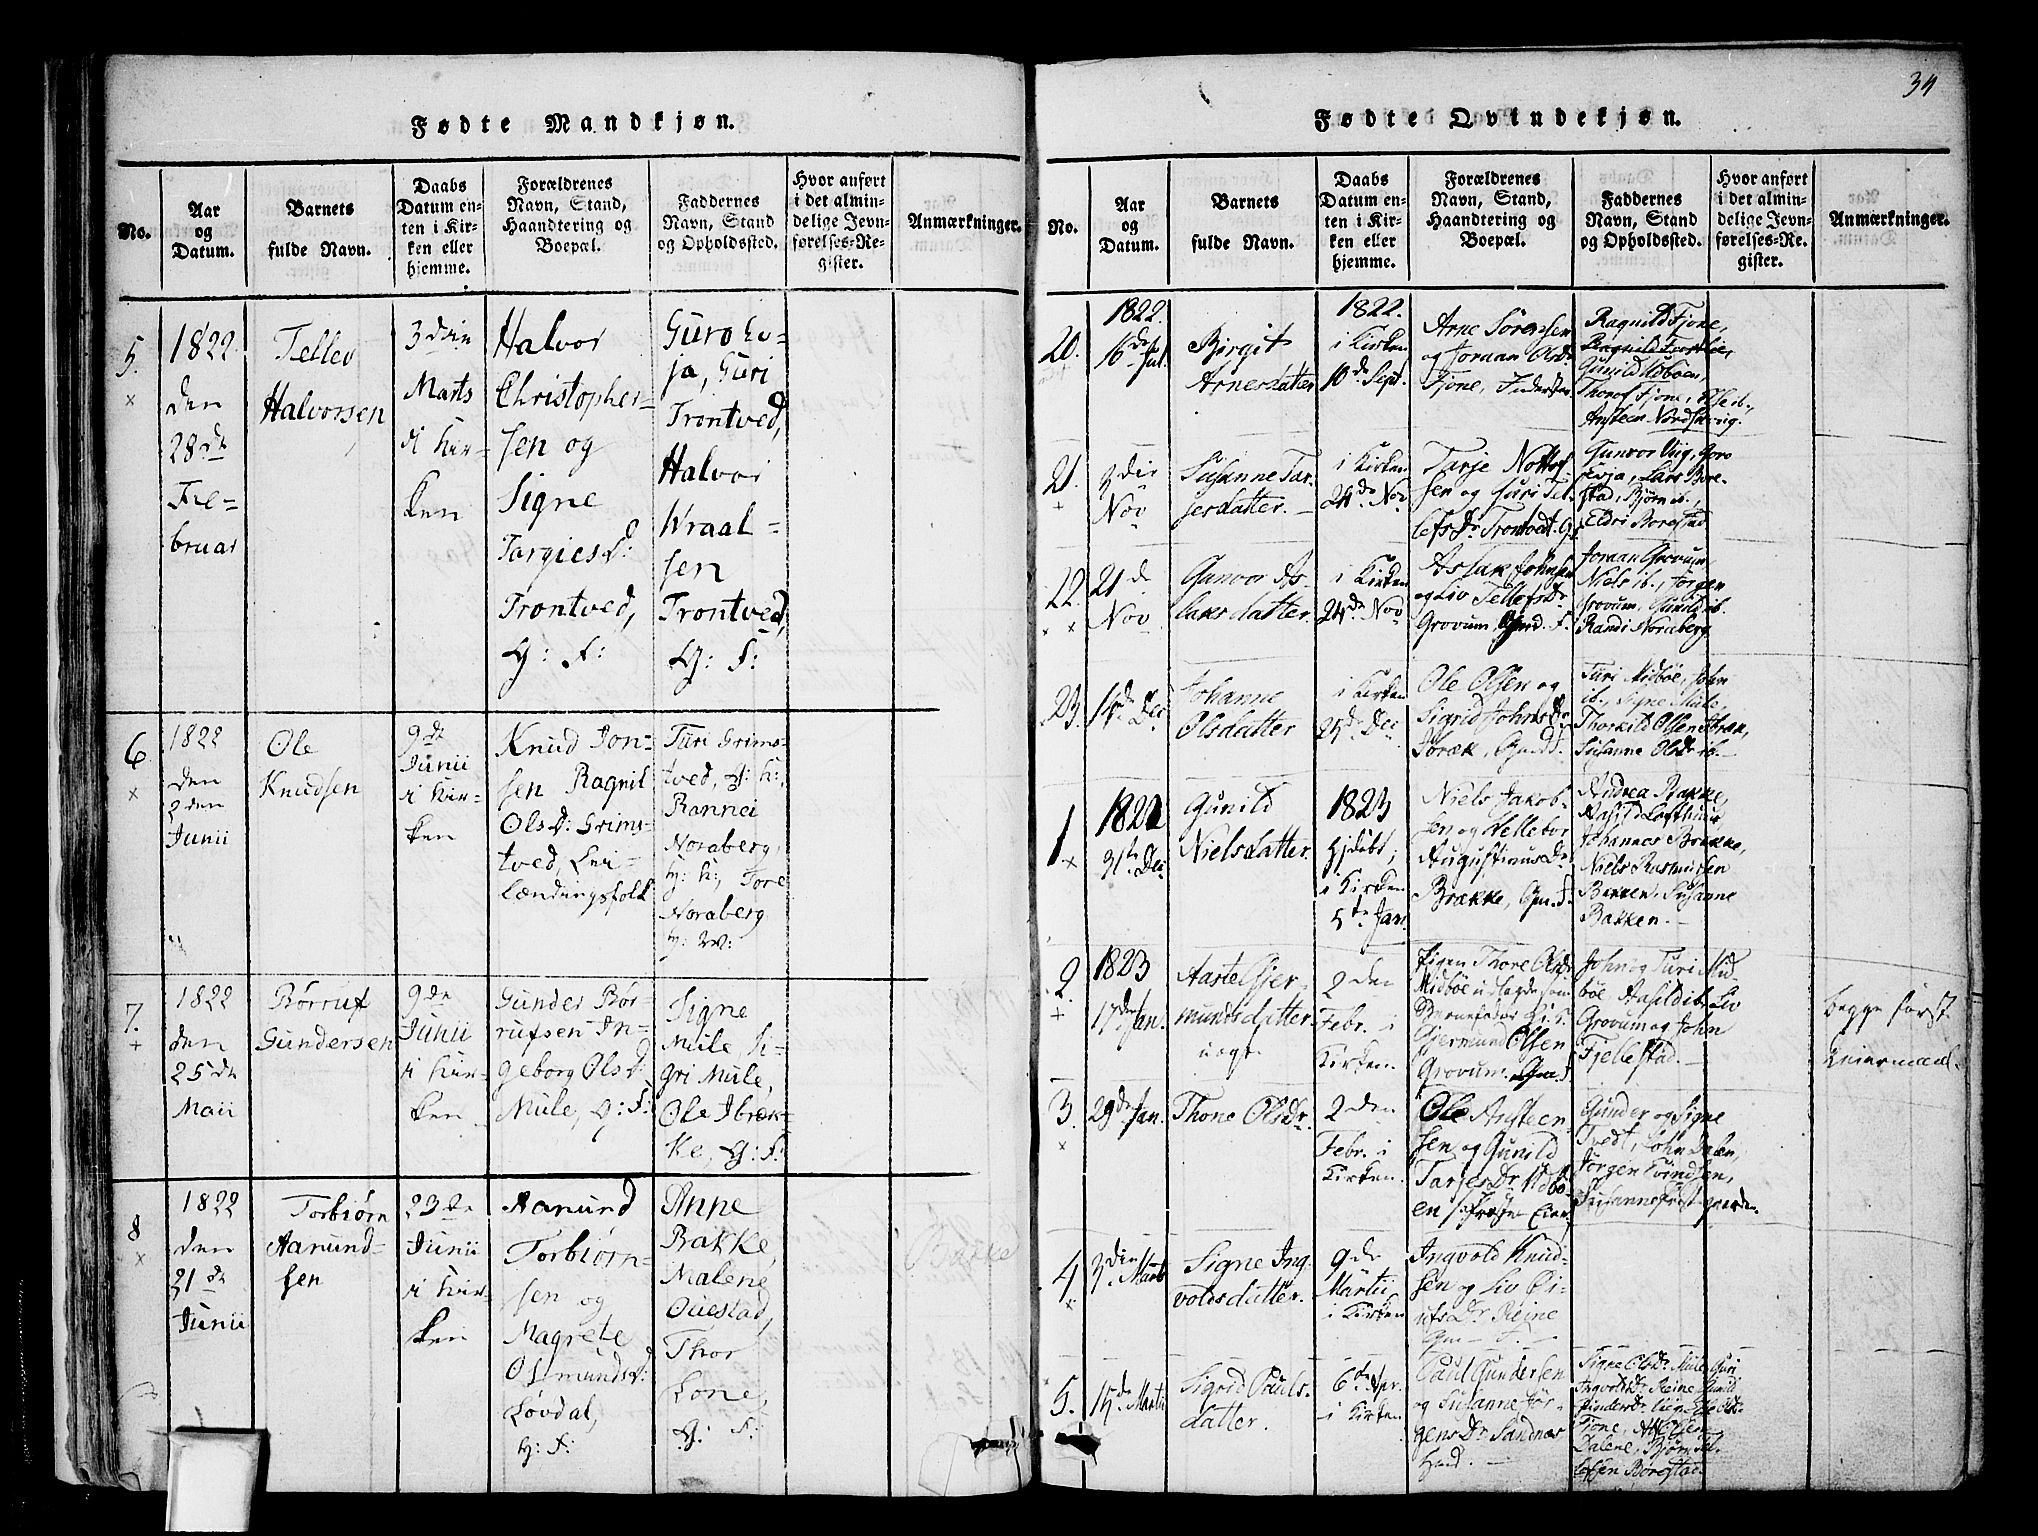 34
Fødte Mandkjøn.
No.
Aar
og
Datum.
Barnets
fulde Navn.
Daabs
Datum en-
ten i Kir-
ken eller
hjemme.
Forældrenes
Navn, Stand,
Haandtering og
Boepæl.
Faddernes
Navn, Stand
og Opholdssted.
Hvor anført
i det almin-
delige Jevn-
førelses-Re-
gister.
Anmærkninger.
5.
1822
den
28de
Fe-
bruar
Tellev
Halvorssen
3die
Marts
i Kir-
ken
Halvor
Christopher-
sen og
Signe
Torgiesd:
Trontved,
G: f:
Guro
ja, Guri
Trontved,
Halvor
Wraal-
sen
Trontved,
G: f:
6
1822
den
2den
Junii
Ole
Knudsen
9de
Junii
i Kir-
ken
Knud Jon-
sen Ragnil
Olsd: Grims-
tved, Lei-
lændingsfolk
Turi Grims-
tved, g: k:,
Rannei
Noraberg,
g: k:, Tore
Noraberg
7.
1822
den
25de
Maii
Børruf
Gundersen
9de
Junii
i Kir-
ken
Gunder Bør-
rufsen In-
geborg Olsd:
Mule, g: f:
Signe
Mule, Si-
gri Mule,
Ole Ibræk-
ke, G: f:
8
1822
den
21de
Junii
Torbiørn
Aanund-
sen
23de
Junii
i Kir-
ken
Aanund
Torbiørn-
sen og
Magrete
Osmundsd:
Løvdal,
g: f:
Anne
Bakke,
Malene
Ouestad,
Thor
Lone,
G: f:
Fødte Qvindekjøn.
No.
Aar
og
Datum.
Barnets
fulde Navn.
Daabs
Datum en-
ten i Kir-
ken eller
hjemme.
Forældrenes
Navn, Stand,
Haandtering og
Boepæl.
Faddernes
Navn, Stand
og Opholdssted.
Hvor anført
i det almin-
delige Jevn-
førelses-Re-
gister.
Anmærkninger.
20.
1822.
16de Jul.
Birgit
Arnesdatter
1822.
i Kirken
10de Sept.
Arne Sörensen
og Joraan Olsdr
Fjone,
Ragnild Fjone,
Gunild Udböen,
Thorof Fjone,
Ansteen Nordskovig.
21.
3die
Nov
Susanne Tar-
jersdatter.
i Kirken
24de Nov
Tarje Nottof-
sen og Guri Tel-
lefs Dr Trontvedt.
Gunvor Vug, Goro
Evja, Lars Bore-
stad, Bjørn ib.,
Eldri Borestad
22.
21de
Nov
Gunvor As-
laksdatter.
i Kirken
24de Nov
Aslak Johnsen
og Liv Tellefs Dr
Grovum, Gmd. f.
Joraan Grovum
Niels ib., Jörgen
Grovum, Gunild ib.
Randi Noraberg
23.
14de Dec
Johanne
Olsdatter
i Kirken
25de Dec
Ole Olsen og
Sigrid Johns Dr
Turi Midböe, John
ib., Signe Mule,
Thorkild Olsen
Susanne Olsdr ib.
1
1822
31te Dec
Gunild
Nielsdatter.
1823
Hjdöbt;
i Kirken
5te Jan.
Niels Jakob-
sen og Vellebor
Augustinus Dr
Brække, Gm. f.
Andrea Bakke,
Aasild Lofthuus
Johannes Brække,
Niels Rasmussen
Bakken, Susanne
Bakken.
2.
1823
17de Jan.
Aaste Gjer-
mundsdatter.
uægt.
2den
Febr. i
Kirken.
Pigen Thore Olsdr
Midböe udlagde som
Barnefader
Gjermund Olsen
Grovum. Gm. f
John og Turi Mid-
böe Aasild ib. Liv
Grovum og John
Fjellestad.
begge först
Leiermaal.
3.
29de Jan.
Thone Olsdr.
2den
Febr. i
Kirken.
Ole Ansteen-
sen og Gunild
Tarjes Dr Udbö-
en
Gunder og Signe
Tvedt, John Dalen,
Jörgen
Susanne
4
3die Marts
Signe Ing-
voldsdatter.
9de
Martii
i Kirken
Ingvold Knud-
sen og Liv Ei-
ufs Dr Reine
Gm f.
5.
15de Martii
Sigrid Pauls-
datter.
6te Apr.
i Kirken
Paul Gundersen
og Susanne Jör-
gens Dr Sandnæs
Signe Olsdr Mule, Guri
Ingvoldsdr Reine, Gunild
Fjone,
Dalene, Bjørn Tel-
lefsen Borestad.